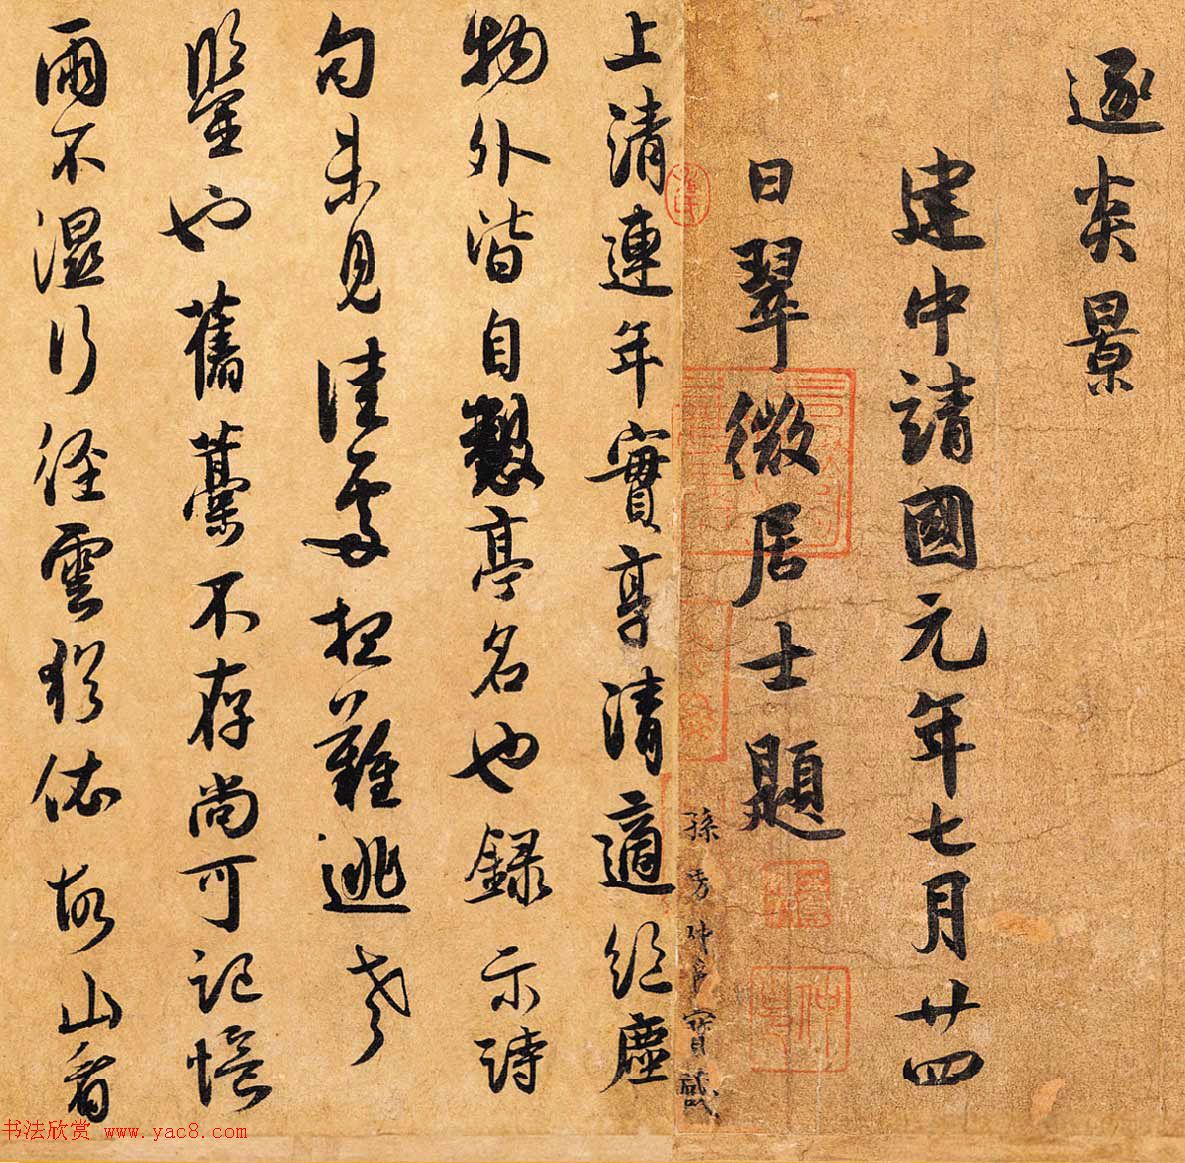 逐炎景
建中靖國元年七月廿四
日翠微居士題
孫寶藏
上清連年實享清適塵
物外皆自亭名也錄示詩
句未見佳處難逃老
鑒也舊藁不存尚可記憶
雨不濕行徑雲猶依故山看
书法欣赏 www.yac8.com